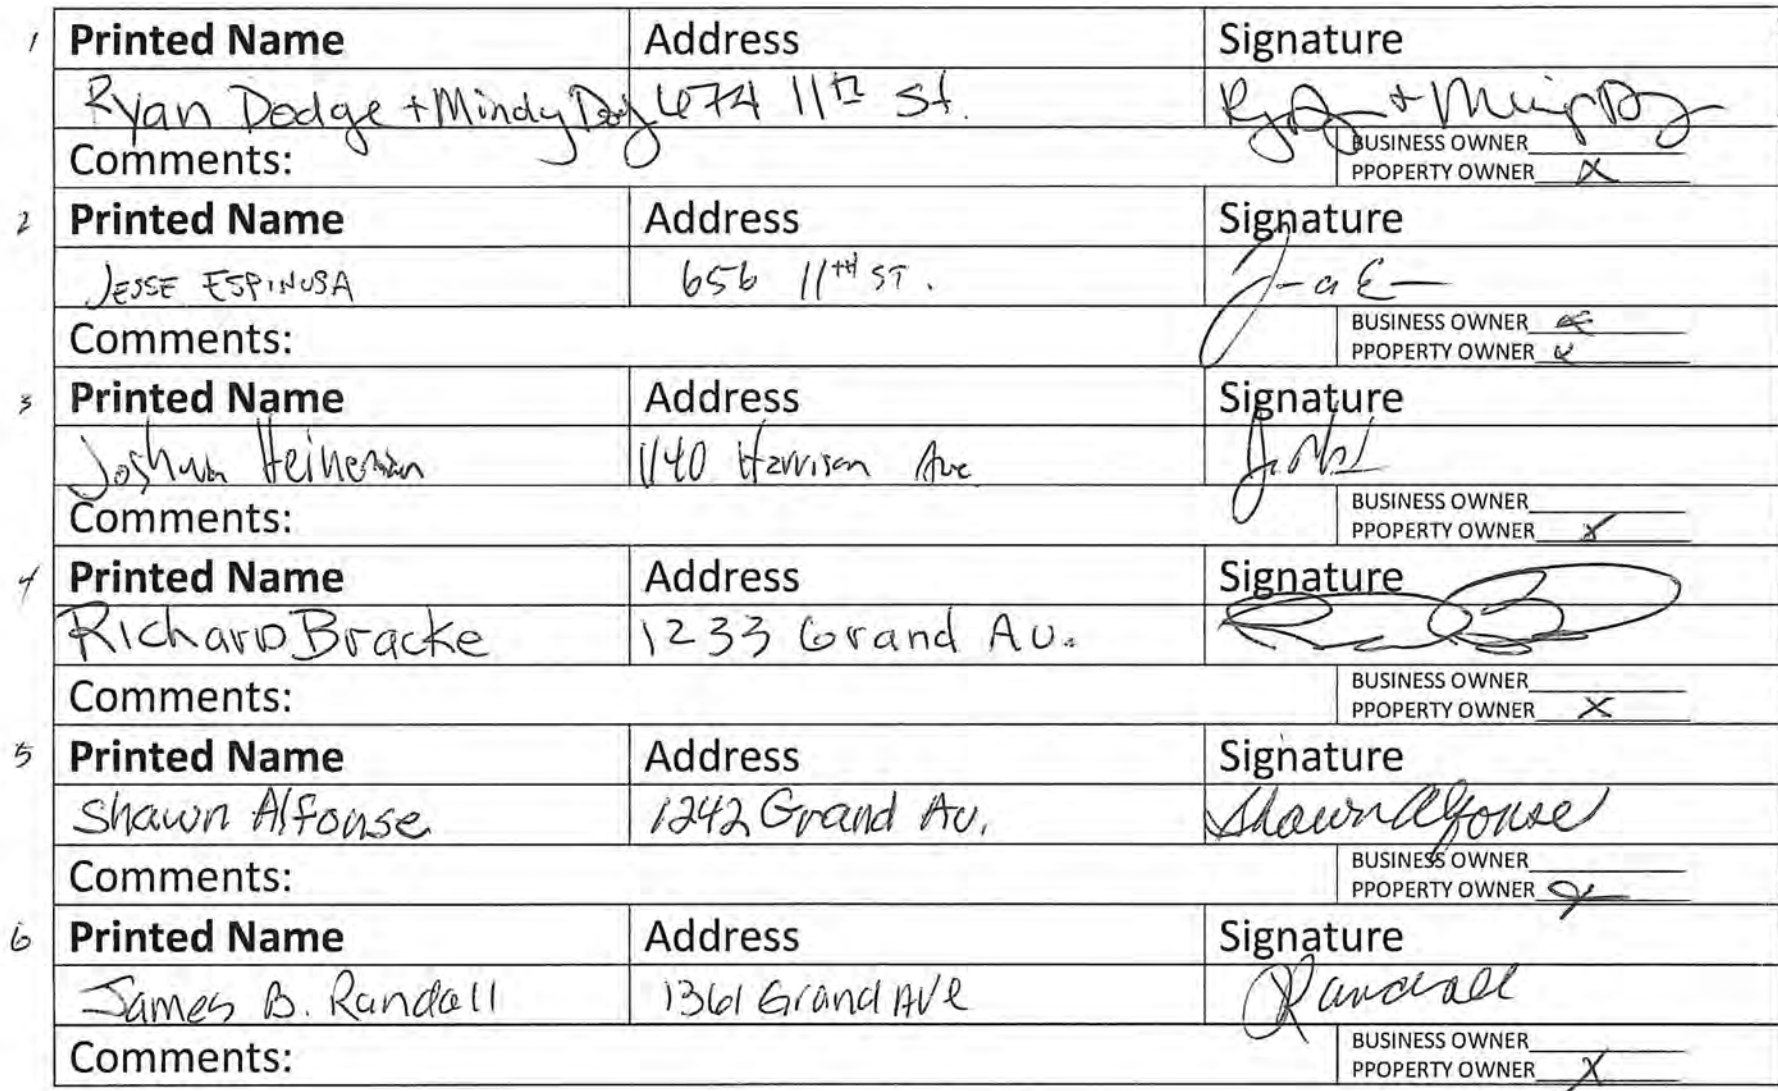 1 Printed Name Address Signature
Ryan Dodge + Mindy 674 11th St.
Comments: BUSINESS OWNER
PPOPERTY OWNER X
2 Printed Name Address Signature
JESSE ESPINOSA 656 11TH ST.
Comments: BUSINESS OWNER
PPOPERTY OWNER
3 Printed Name Address Signature
Joshua Heineman 1140 Harrison Ave
Comments: BUSINESS OWNER
PPOPERTY OWNER X
4 Printed Name Address Signature
Richard Bracke 1233 Grand Av.
Comments: BUSINESS OWNER
PPOPERTY OWNER X
5 Printed Name Address Signature
Shawn Alfonse 1242 Grand Av. Shawn Alfonse
Comments: BUSINESS OWNER
PPOPERTY OWNER X
6 Printed Name Address Signature
James B. Randall 1361 Grand AVe Randall
Comments: BUSINESS OWNER
PPOPERTY OWNER X